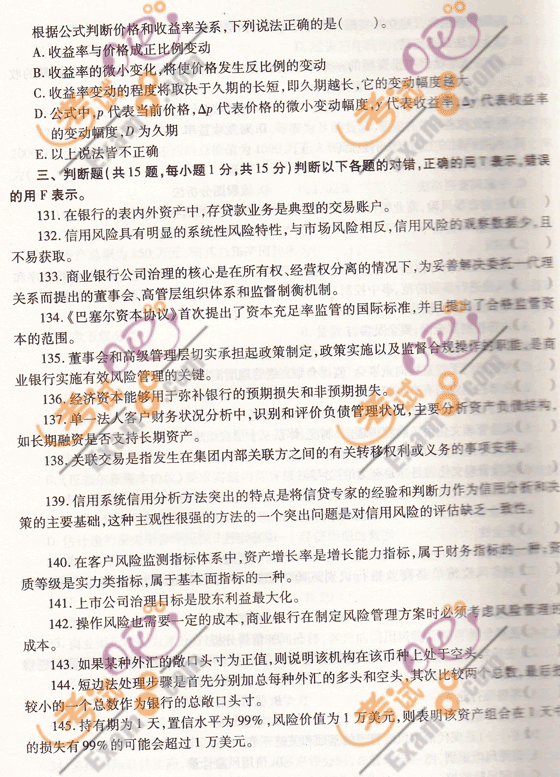 根据公式判断价格和收益率关系,下列说法正确的是(　　)。
A. 收益率与价格成正比例变动
B. 收益率的微小变化,将使价格发生反比例的变动
C. 收益率变动的程度将取决于久期的长短,即久期越长,它的变动幅度越大
D. 公式中,p 代表当前价格,Δp 代表价格的微小变动幅度,y 代表收益率,Δy 代表收益率
的变动幅度,D 为久期
E. 以上说法皆不正确
三、判断题(共 15 题,每小题 1 分,共 15 分)判断以下各题的对错,正确的用 T 表示,错误
的用 F 表示。
131. 在银行的表内外资产中,存贷款业务是典型的交易账户。
132. 信用风险具有明显的系统性风险特性,与市场风险相反,信用风险的观察数据少,且
不易获取。
133. 商业银行公司治理的核心是在所有权、经营权分离的情况下,为妥善解决委托一代理
关系而提出的董事会、高管层组织体系和监督制衡机制。
134.《巴塞尔资本协议》首次提出了资本充足率监管的国际标准,并且提出了合格监管资
本的范围。
135. 董事会和高级管理层切实承担起政策制定,政策实施以及监督合规操作的职能,是商
业银行实施有效风险管理的关键。
136. 经济资本能够用于弥补银行的预期损失和非预期损失。
137. 单一法人客户财务状况分析中,识别和评价负债管理状况,主要分析资产负债结构,
如长期融资是否支持长期资产。
138. 关联交易是指发生在集团内部关联方之间的有关转移权利或义务的事项安排。
139. 信用系统信用分析方法突出的特点是将信贷专家的经验和判断力作为信用分析和决
策的主要基础,这种主观性很强的方法的一个突出问题是对信用风险的评估缺乏一致性。
140. 在客户风险监测指标体系中,资产增长率是增长能力指标,属于财务指标的一种,资
质等级是实力类指标,属于基本面指标的一种。
141. 上市公司治理目标是股东利益最大化。
142. 操作风险也需要一定的成本,商业银行在制定风险管理方案时必须考虑风险管理的
成本。
143. 如果某种外汇的敞口头寸为正值,则说明该机构在该币种上处于空头。
144. 短边法处理步骤是首先分别加总每种外汇的多头和空头,其次比较两个总数,最后把
较小的一个总数作为银行的总敞口头寸。
145. 持有期为 1 天,置信水平为 99%,风险价值为 1 万美元,则表明该资产组合在 1 天中
的损失有 99% 的可能会超过 1 万美元。